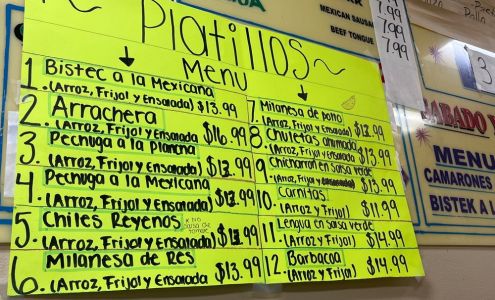 MEXICAN SAUSA
BEEF TONGUE
7.99
7.99
7.99
~ Platillos ~
Menu
1. Bistec a la Mexicana
(Arroz, Frijol y Ensalada) $13.99
2. Arrachera
(Arroz, Frijol y Ensalada $16.99
3. Pechuga a la Plancha
(Arroz, Frijol y Ensalada) $13.99
4. Pechuga a la Mexicana
(Arroz, Frijol y Ensalada) $13.99
5. Chiles Reyenos
(Arroz, Frijol y Ensalada) $13.99
6. Milanesa de Res
(Arroz, Frijol y Ensalada $13.99
7. Milanesa de pollo
(Arroz, Frijol y Ensalada) $13.99
8. Chuletas ahumada
(Arroz, Frijol y Ensalada) $13.99
9. Chicharron en Salsa verde
(Arroz, Frijol y Ensalada) $13.99
10. Carnitas
(Arroz y Frijol) $11.99
11. Lengua en Salsa verde
(Arroz y Frijol) $14.99
12. Barbacoa
(Arroz y Frijol) $14.99
SABADO
MENU
CAMARONES
BISTEK A L